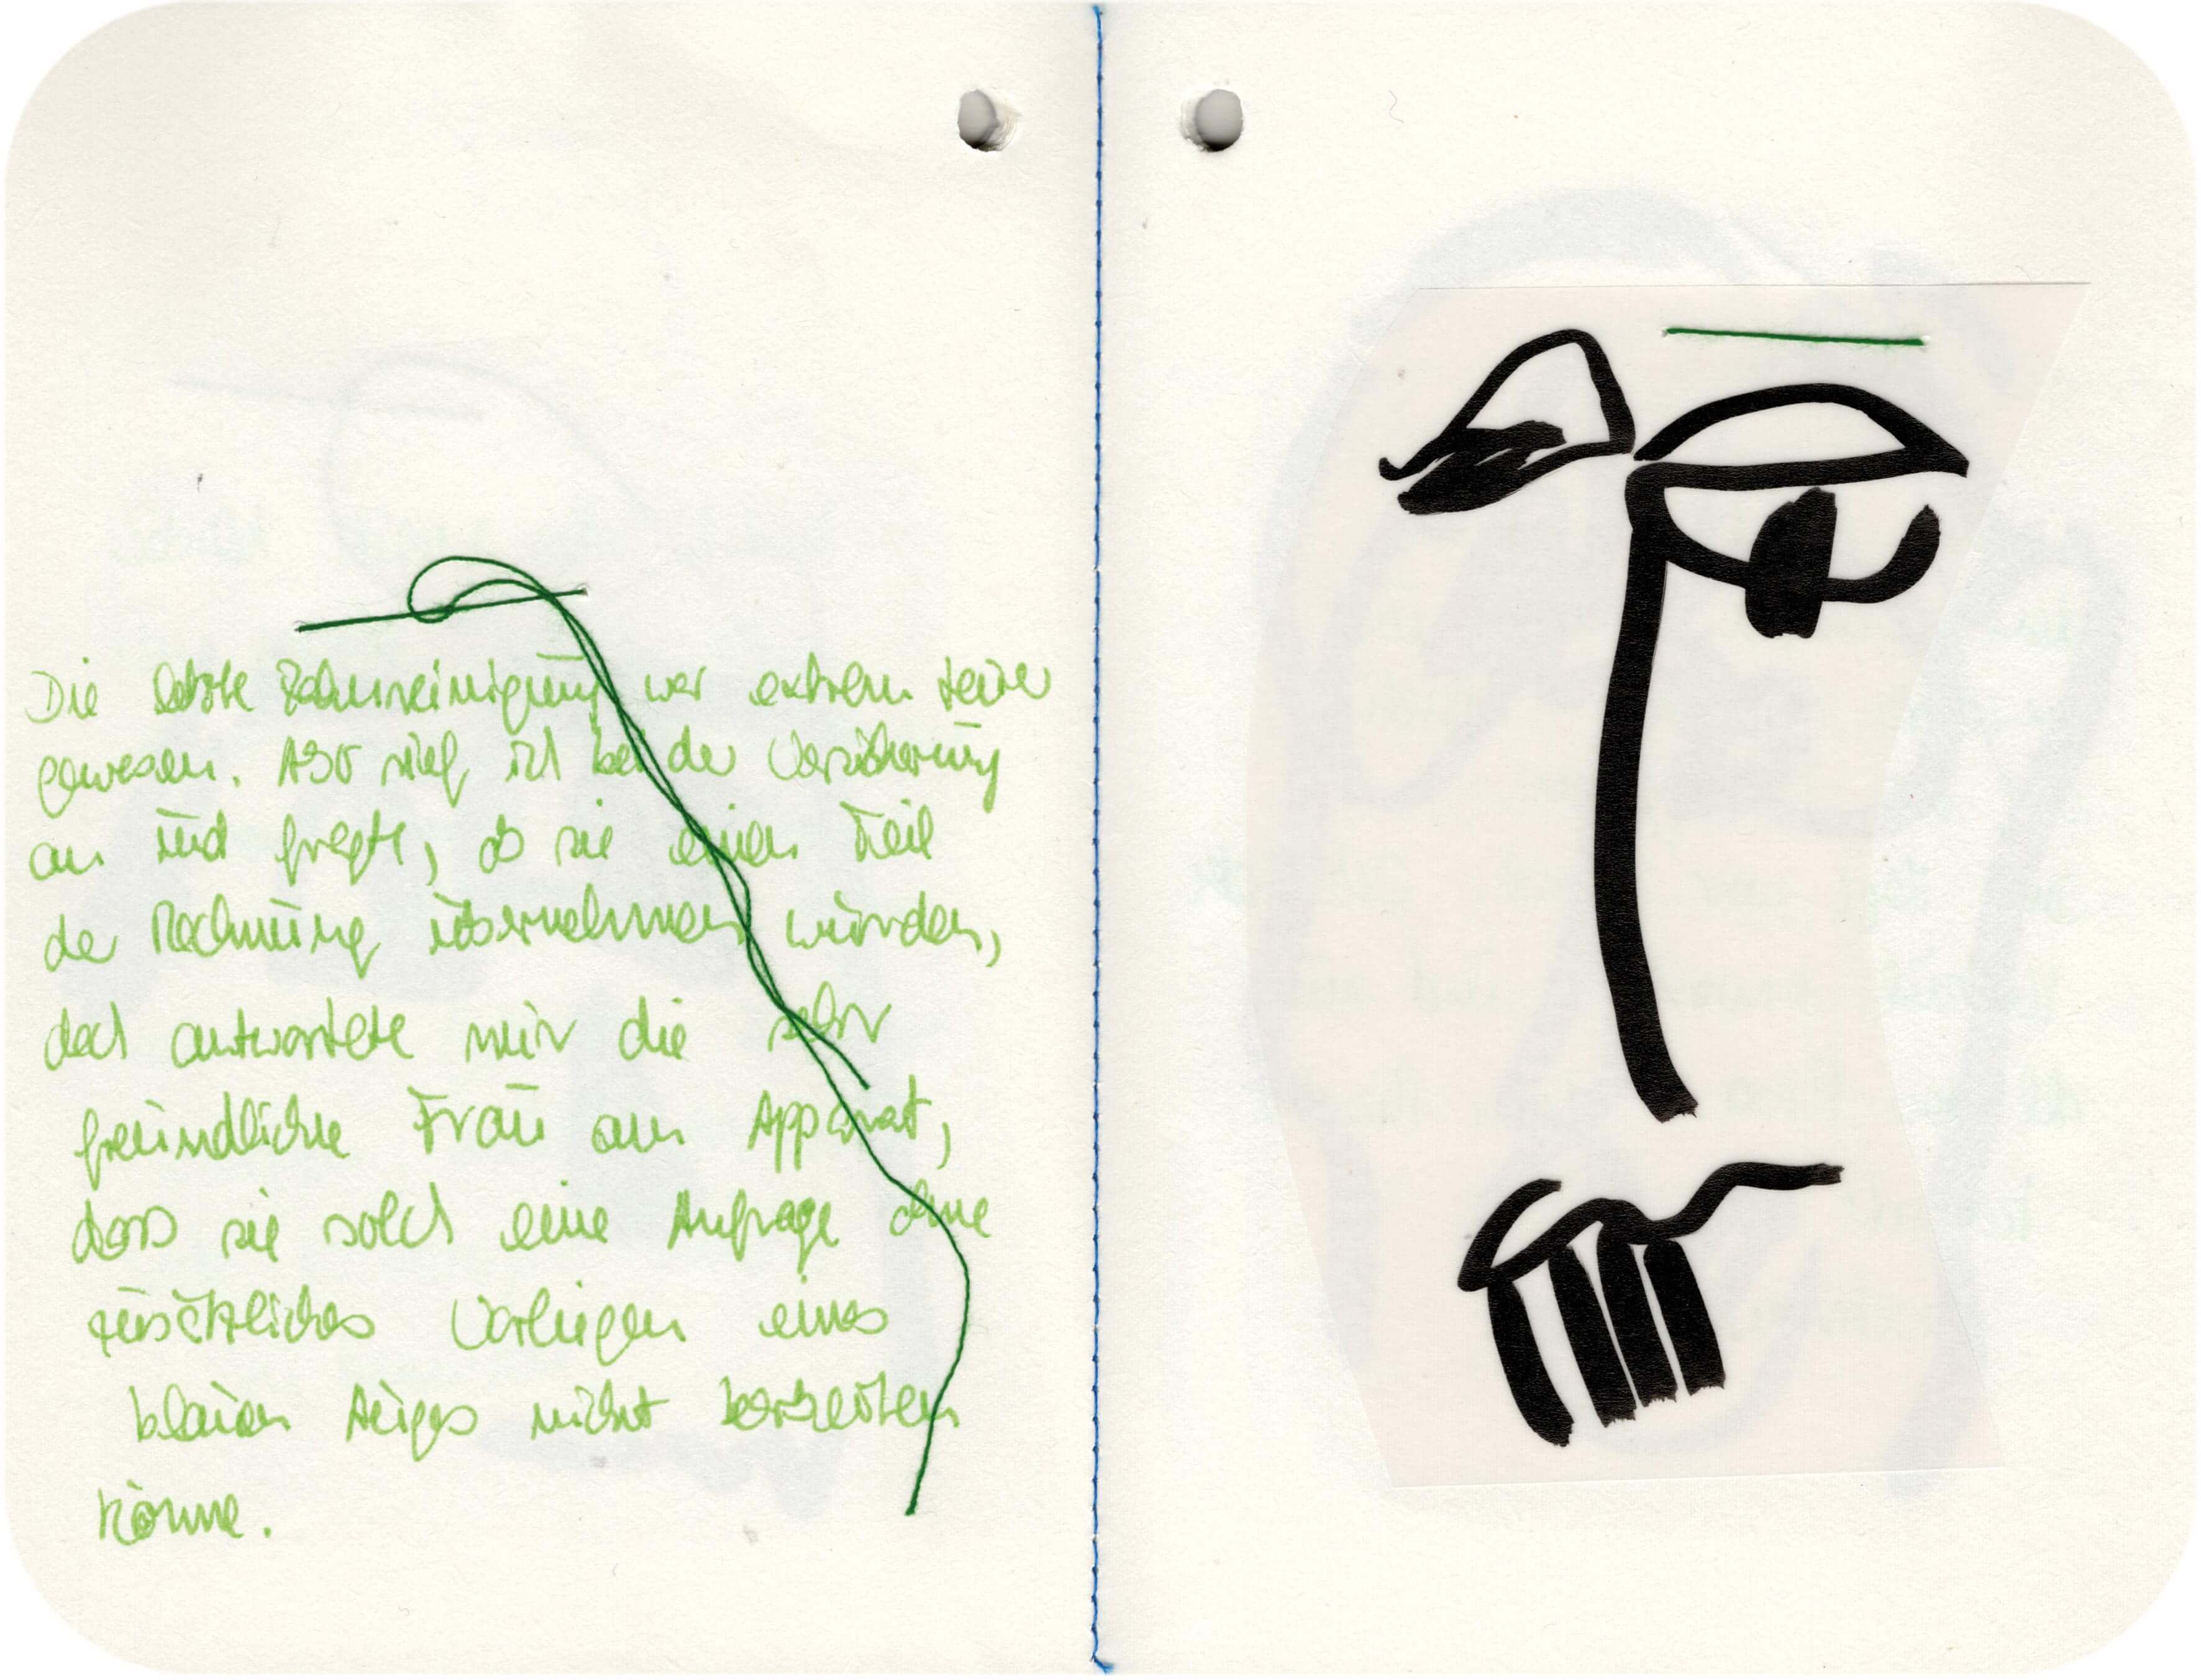 Die letzte Zahnreinigung war extrem teuer
gewesen. Also rief ich bei der Versicherung
an und fragte, ob sie einen Teil
der Rechnung übernehmen würden,
doch antwortete mir die sehr
freundliche Frau am Apparat,
dass sie solch eine Anfrage ohne
zusätzliches Vorliegen eines
blauen Auges nicht bearbeiten
könne.